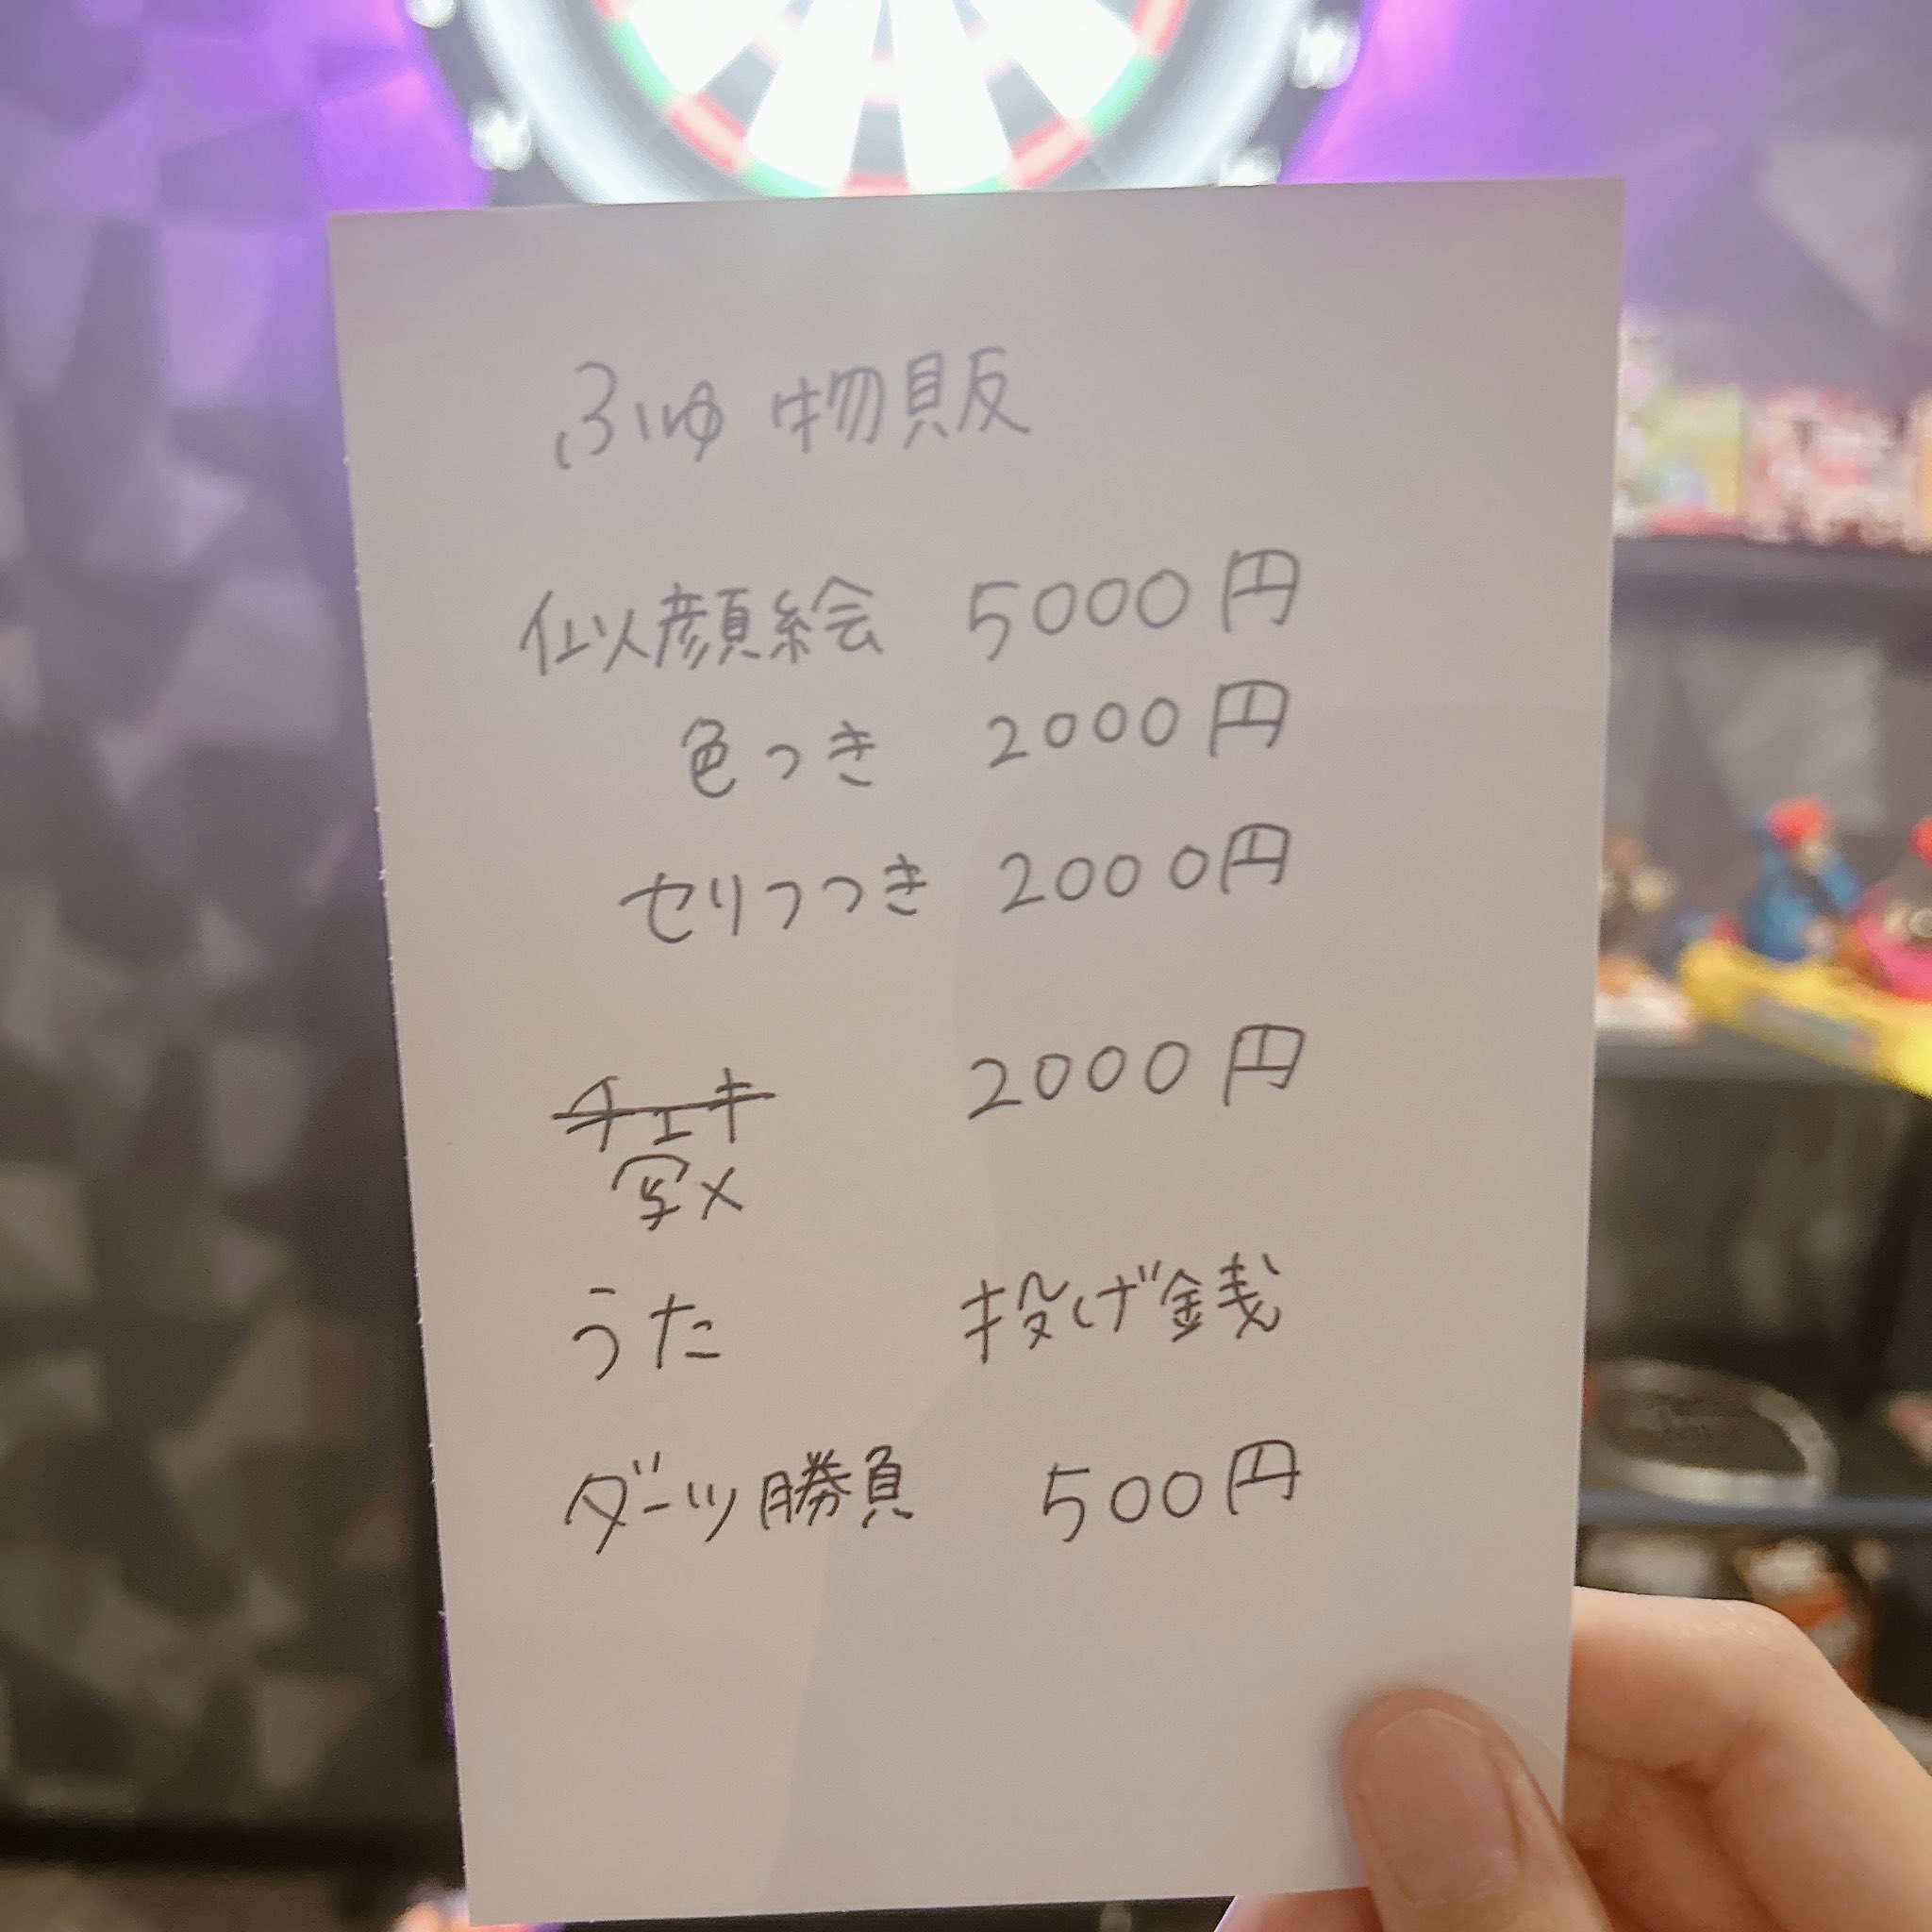 ふゆ 物販
似顔絵 5000円
色つき 2000円
セリフつき 2000円
チェキ 2000円
写メ
うた 投げ銭
ダーツ勝負 500円